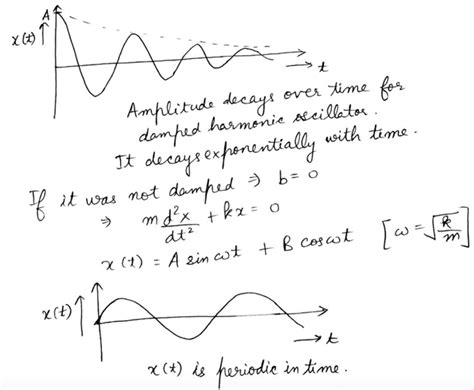 A
x(t) ↑
→ t
Amplitude decays over time for
damped harmonic oscillator.
It decays exponentially with time.
If it was not damped ⇒ b = 0
⇒ m d²x/dt² + kx = 0
x(t) = A sin ωt + B cos ωt [ω = √(k/m)]
x(t) ↑
→ t
x(t) is periodic in time.